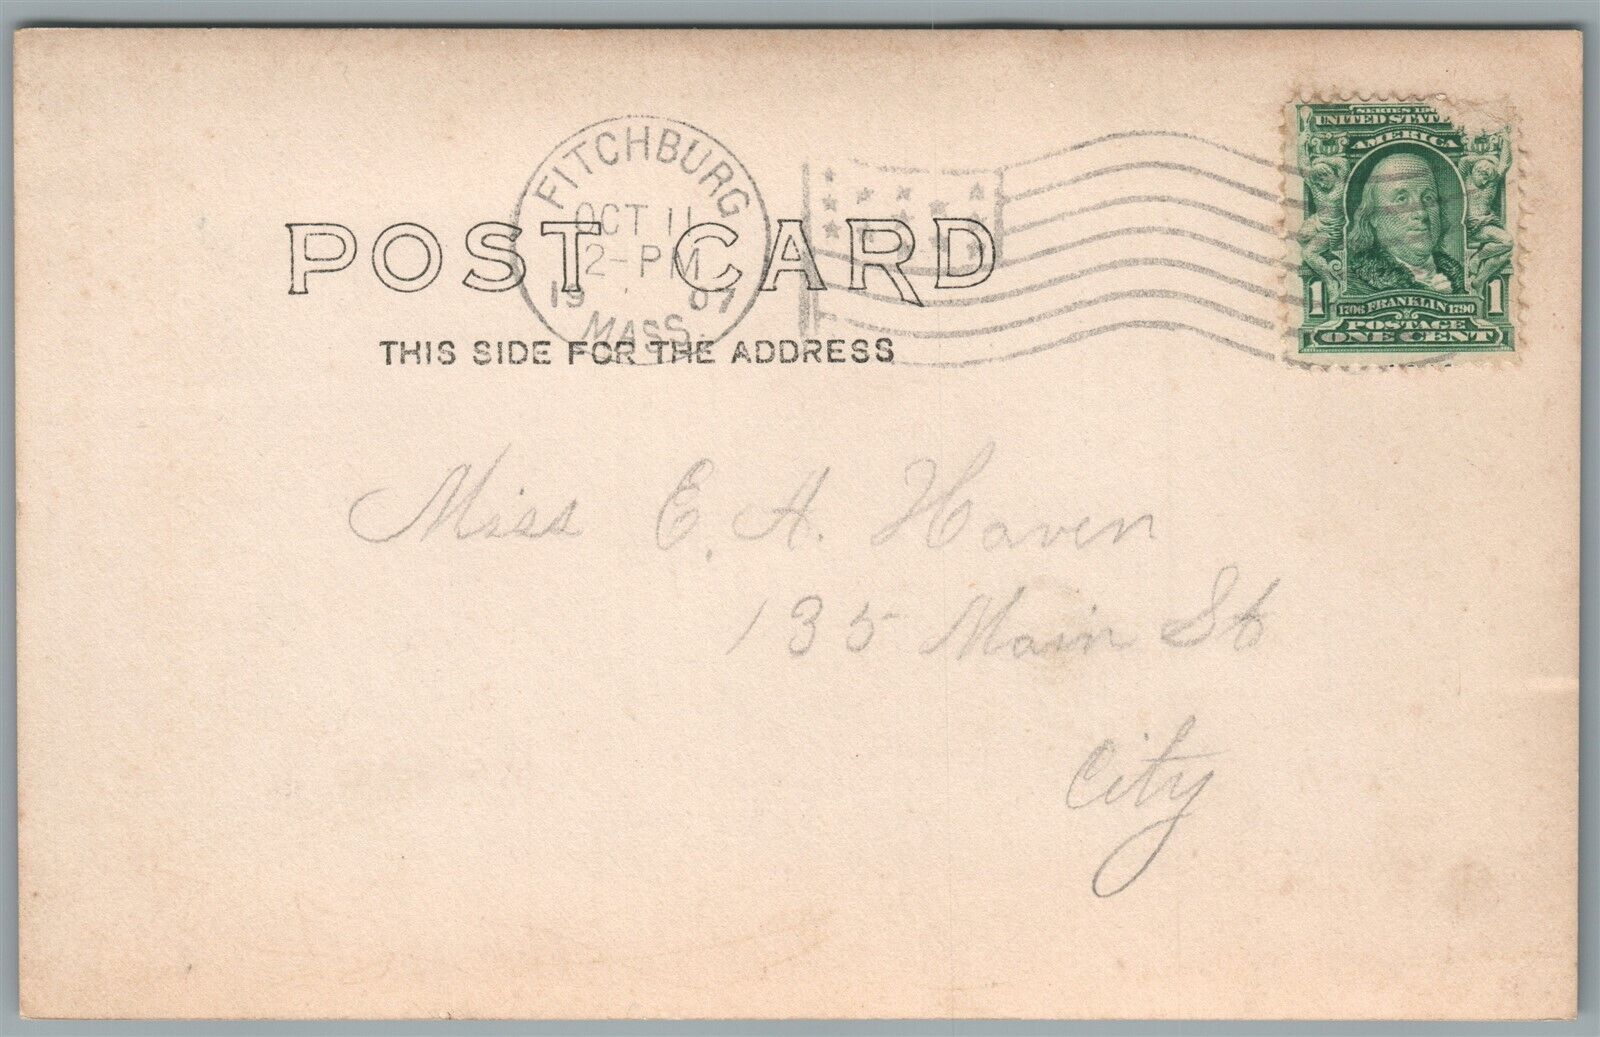 FITCHBURG
OCT 11
2-PM
19 07
MASS.
SERIES
UNITED STATE
AMERICA
1 1706 FRANKLIN 1790 1
POSTAGE
ONE CENT
POST CARD
THIS SIDE FOR THE ADDRESS
Miss E. A. Haven
135 Main St
City